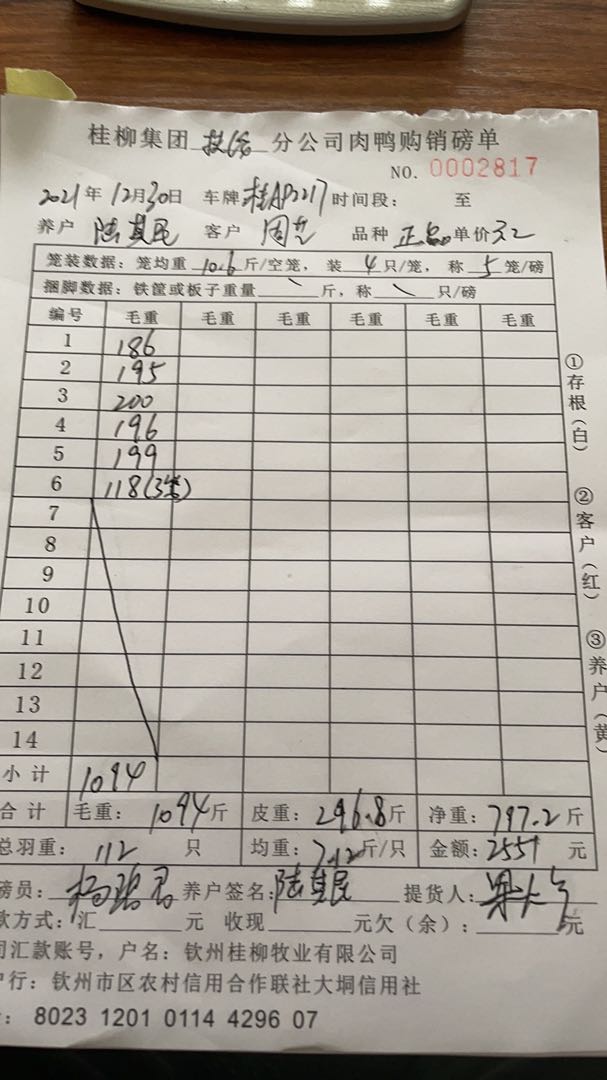 桂柳集团 钦州 分公司肉鸭购销磅单
NO. 0002817
2021年 12月30日 车牌 桂AP2217 时间段: 至
养户 陆其民 客户 周 品种 正品 单价 3.2
笼装数据: 笼均重 10.6 斤/空笼, 装 4 只/笼, 称 5 笼/磅
捆脚数据: 铁筐或板子重量 \ 斤, 称 \ 只/磅
编号 毛重 毛重 毛重 毛重 毛重 毛重
1 186
2 195
3 200
4 196
5 199
6 118(3笼)
7
8
9
10
11
12
13
14
小计 1094
合计 毛重: 1094斤 皮重: 296.8斤 净重: 797.2斤
总羽重: 112 只 均重: 7.12斤/只 金额: 2551 元
磅员: 养户签名: 陆其民 提货人:
款方式: 汇 元 收现 元欠(余): 元
司汇款账号, 户名: 钦州桂柳牧业有限公司
户行: 钦州市区农村信用合作联社大垌信用社
: 8023 1201 0114 4296 07
①存根(白)
②客户(红)
③养户(黄)